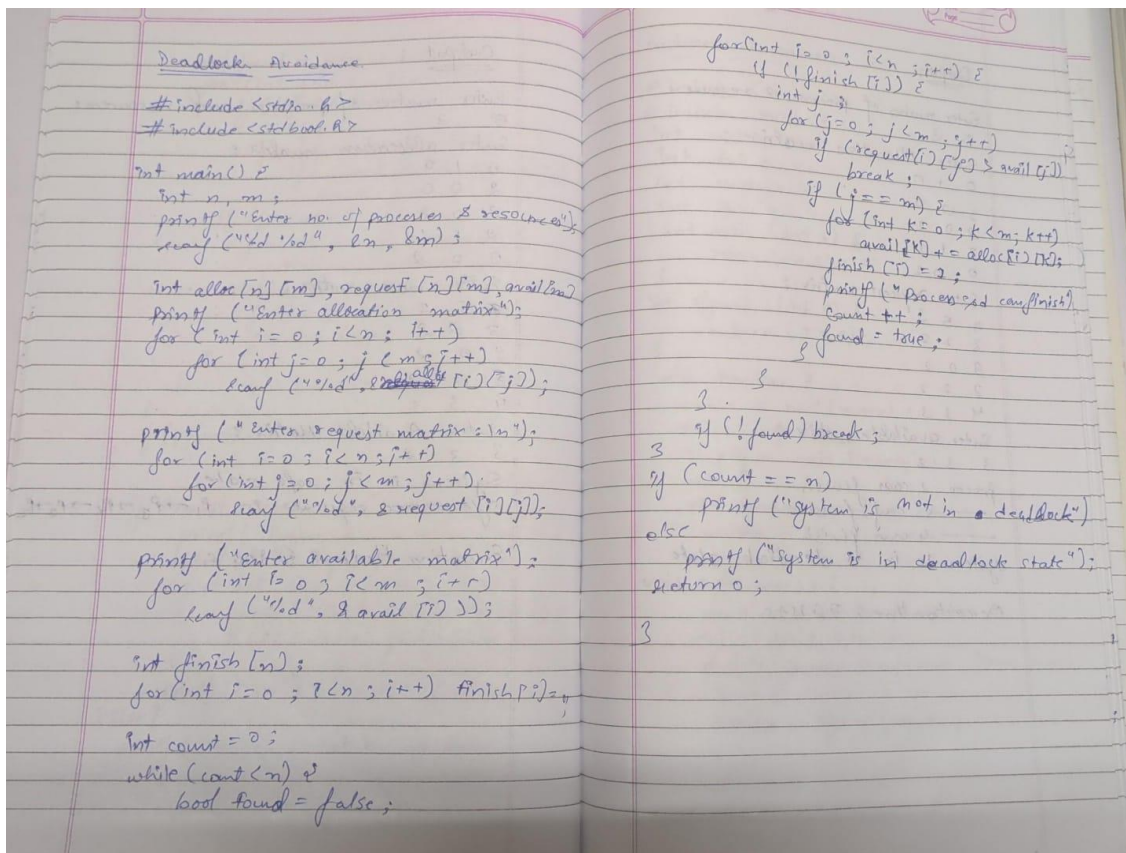 Deadlock Avoidance
#include <stdio.h>
#include <stdbool.h>
int main() {
int n, m;
printf ("Enter no. of processes & resources");
scanf ("%d %d", &n, &m);
int alloc [n][m], request [n][m], avail[m]
printf ("Enter allocation matrix");
for (int i=0; i<n; i++)
for (int j=0; j<m; j++)
scanf ("%d", & alloc [i][j]);
printf ("Enter request matrix: \n");
for (int i=0; i<n; i++)
for (int j=0; j<m; j++)
scanf ("%d", & request [i][j]);
printf ("Enter available matrix");
for (int i=0; i<m; i++)
scanf ("%d", & avail [i]));
int finish [n];
for (int i=0; i<n; i++) finish[i]=
int count = 0;
while (count<n) {
bool found = false;
Page
for (int i=0; i<n; i++) {
if (!finish [i]) {
int j;
for (j=0; j<m; j++)
if (request[i][j] > avail[j])
break;
if (j==m) {
for (int k=0; k<m; k++)
avail[k] += alloc[i][k];
finish [i] = 1;
printf ("Process %d can finish")
count ++;
found = true;
}
}
}
if (!found) break;
}
if (count == n)
printf ("System is not in deadlock")
else
printf ("System is in deadlock state");
return 0;
}